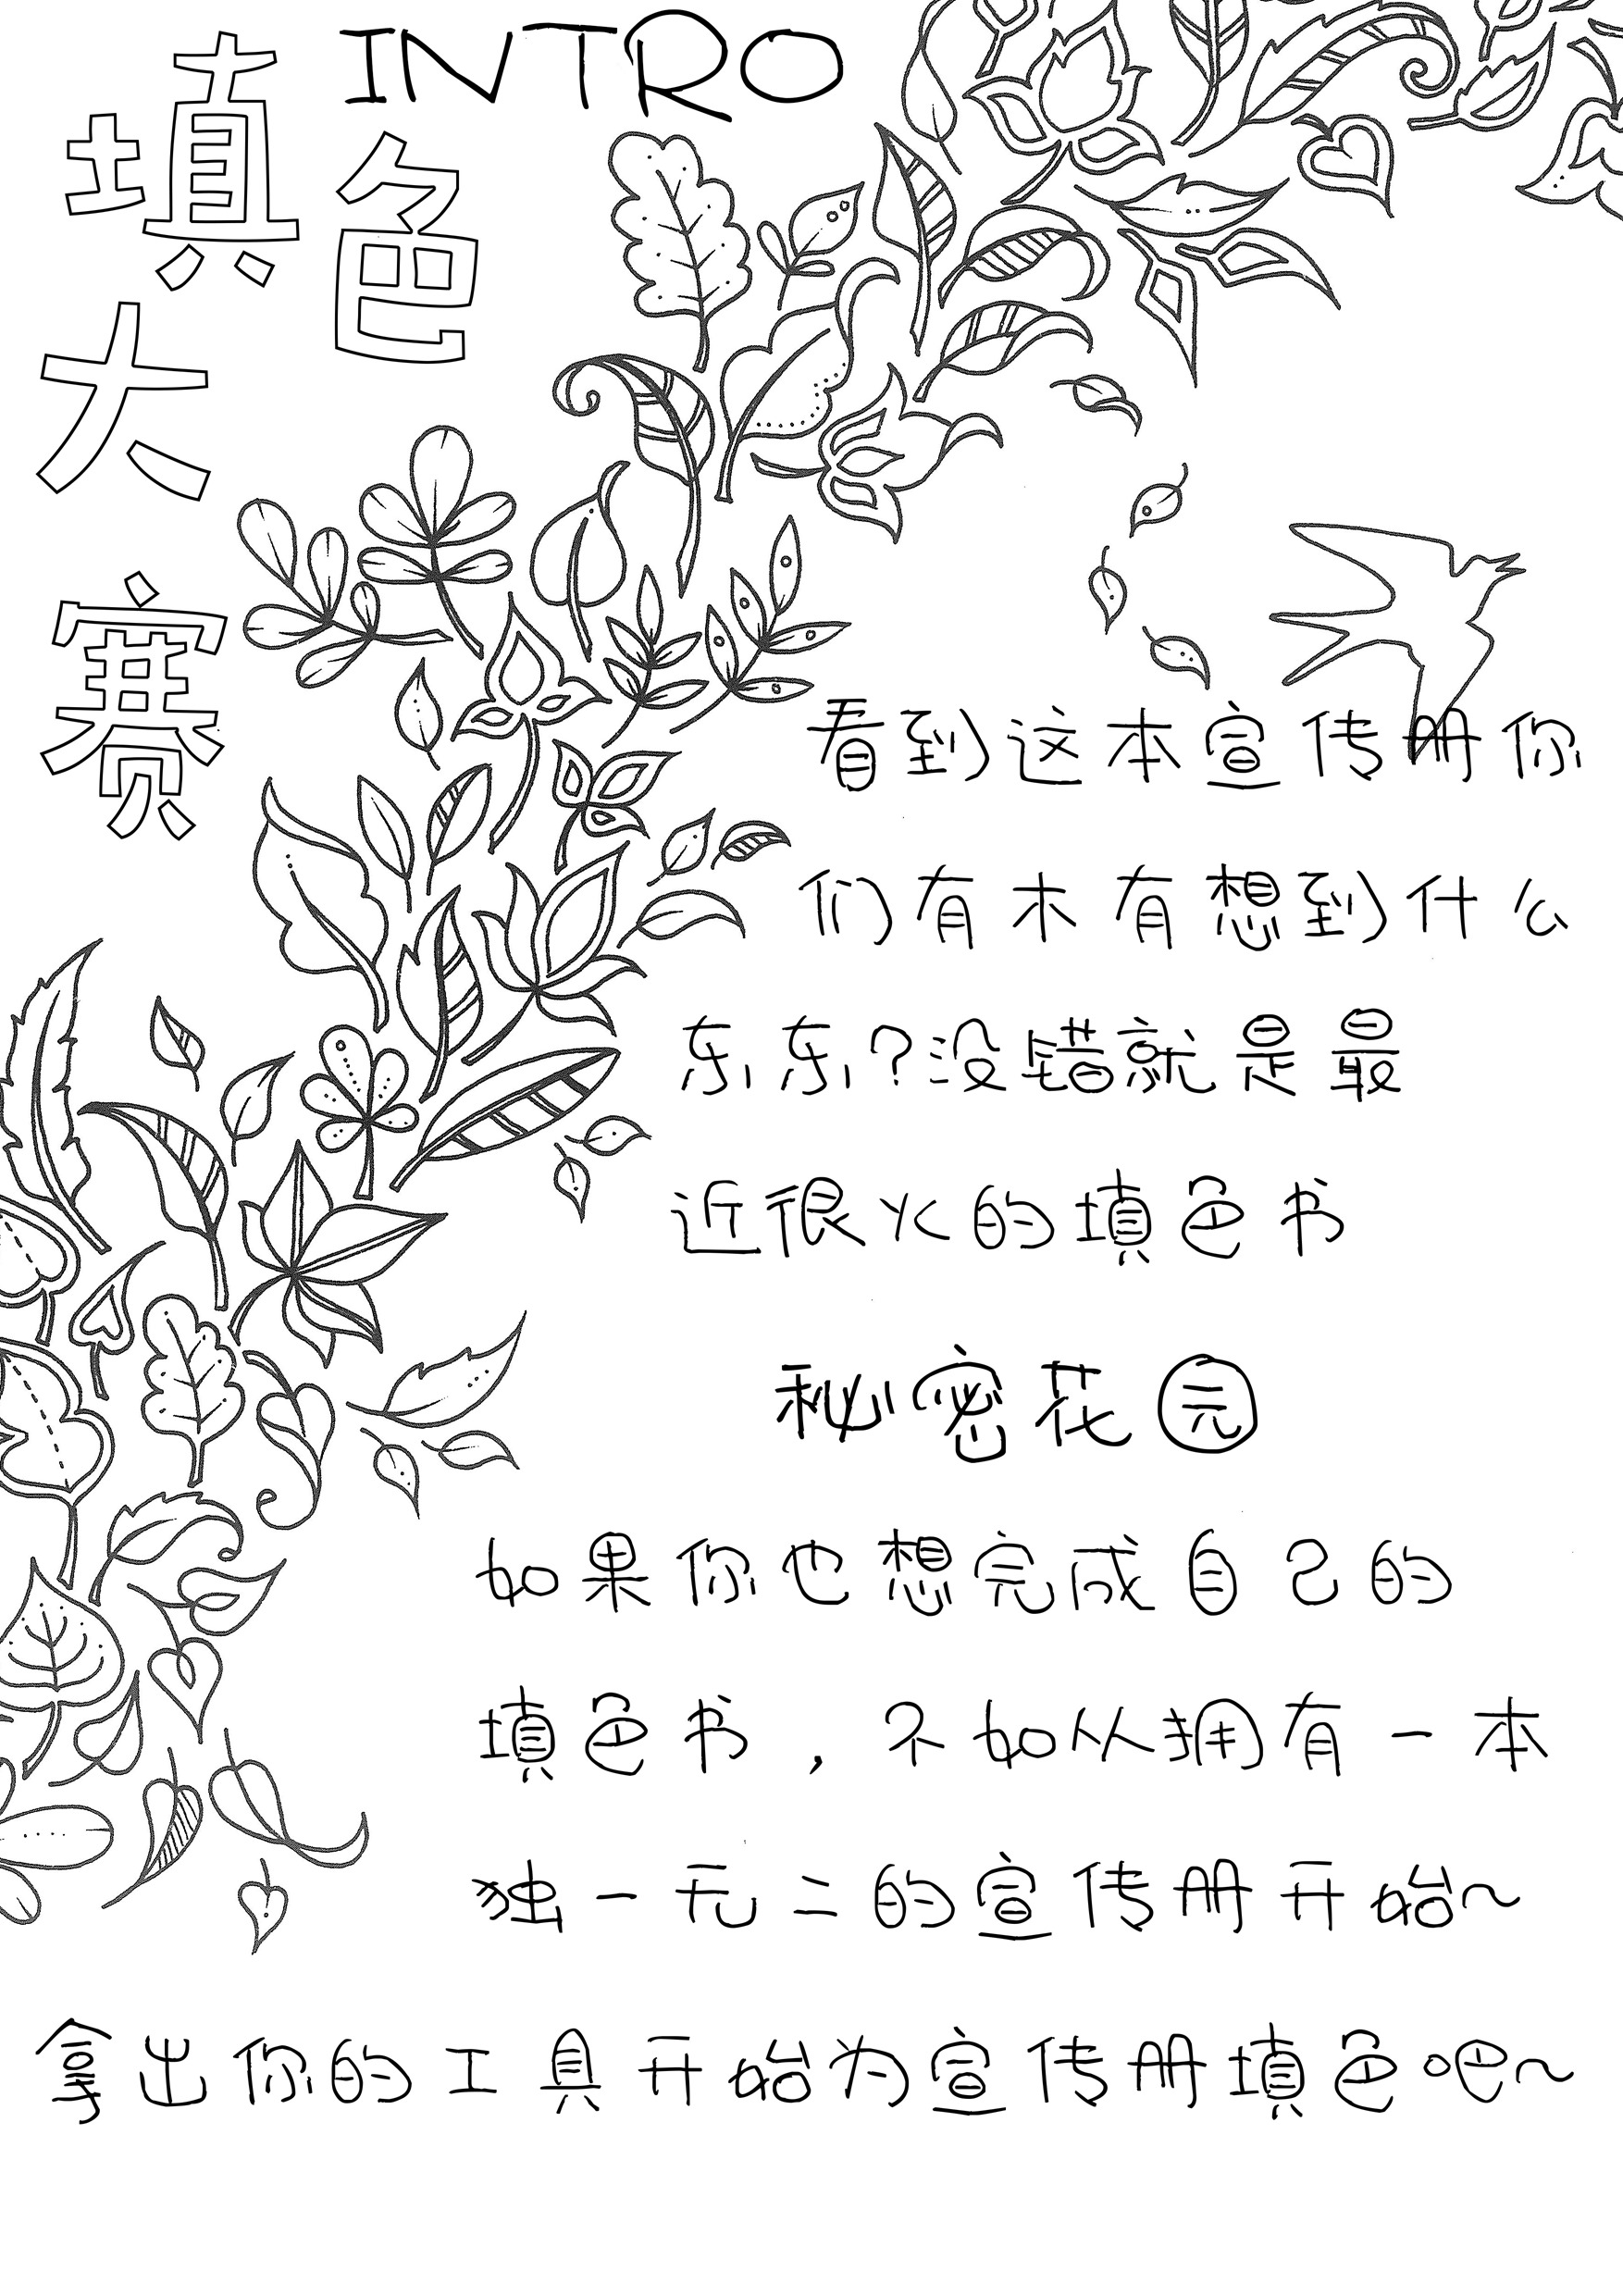 INTRO
填色
大
赛
看到这本宣传册你
们有木有想到什么
东东?没错就是最
近很火的填色书
秘密花园
如果你也想完成自己的
填色书，不如从拥有一本
独一无二的宣传册开始~
拿出你的工具开始为宣传册填色吧~